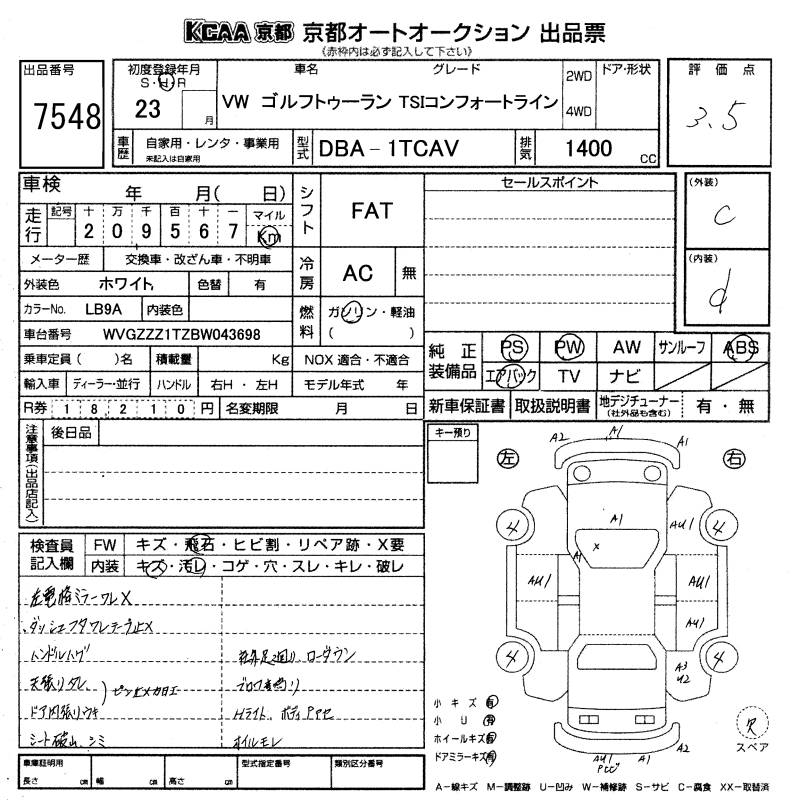 KCAA 京都 京都オートオークション 出品票
《赤枠内は必ず記入して下さい》
出品番号
7548
初度登録年月
S・H・R
23 月
車名 グレード
VW ゴルフトゥーラン TSIコンフォートライン
2WD
4WD
ドア・形状
評価点
3.5
車歴
自家用・レンタ・事業用
未記入は自家用
型式
DBA-1TCAV
排気
1400 CC
車検 年 月( 日)
走行
記号 十 万 千 百 十 一 マイル
2 0 9 5 6 7 Km
シフト
FAT
セールスポイント
(外装)
C
(内装)
d
メーター歴 交換車・改ざん車・不明車
外装色 ホワイト 色替 有
冷房
AC 無
カラーNo. LB9A 内装色
燃料
ガソリン・軽油
( )
車台番号 WVGZZZ1TZBW043698
乗車定員( )名 積載量 Kg NOX 適合・不適合
輸入車 ディーラー・並行 ハンドル 右H・左H モデル年式 年
R券 18210円 名変期限 月 日
純正装備品
PS PW AW サンルーフ ABS
エアバック TV ナビ
新車保証書 取扱説明書 地デジチューナー (社外品も含む) 有・無
注意事項(出品店記入)
後日品
キー預り
左 右
A2 A1 A1
4 4
A1 AU1
A1 X
AU1 AU1
AU1
4 4
A3
U2
AU1 A2
検査員記入欄
FW キズ・飛石・ヒビ割・リペア跡・X要
内装 キズ・汚レ・コゲ・穴・スレ・キレ・破レ
左電格ミラーワレX
ハンドルハゲ
天張リタレ
ピン止メ加工
ドア内張リウキ
シート破レ、シミ
社外足廻り、ローダウン
Hライト、ボディヤケ
オイルモレ
小キズ 有
小U 有
ホイールキズ 有
ドアミラーキズ 有
欠
スペア
車庫証明用
長さ cm 幅 cm 高さ cm
型式指定番号
類別区分番号
A-線キズ M-調整跡 U-凹み W-補修跡 S-サビ C-腐食 XX-取替済